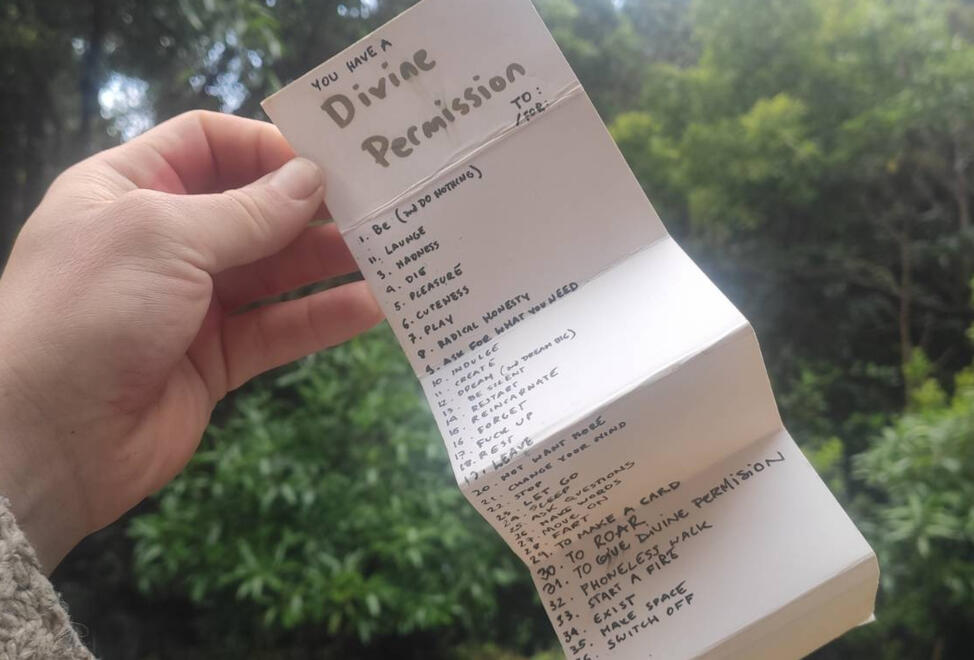 YOU HAVE A
Divine
Permission
TO:
/FOR:
1. BE (AND DO NOTHING)
11. LAUNGE
3. MADNESS
4. DIE
5. PLEASURE
6. CUTENESS
7. PLAY
8. RADICAL HONESTY
9. ASK FOR WHAT YOU NEED
10. INDULGE
11. CREATE
12. DREAM (AND DREAM BIG)
13. BE SILENT
14. RESTART
15. REINCARNATE
16. FORGET
17. FUCK UP
18. REST
19. LEAVE
20. NOT WANT MORE
21. CHANGE YOUR MIND
22. STOP
23. LET GO
24. SLEEP
25. ASK QUESTIONS
26. MAKE WORDS
27. MOVE ON
28. FART
29. TO MAKE A CARD
30. TO ROAR
31. TO GIVE DIVINE PERMISION
32. PHONELESS WALK
33. START A FIRE
34. EXIST
35. MAKE SPACE
36. SWITCH OFF